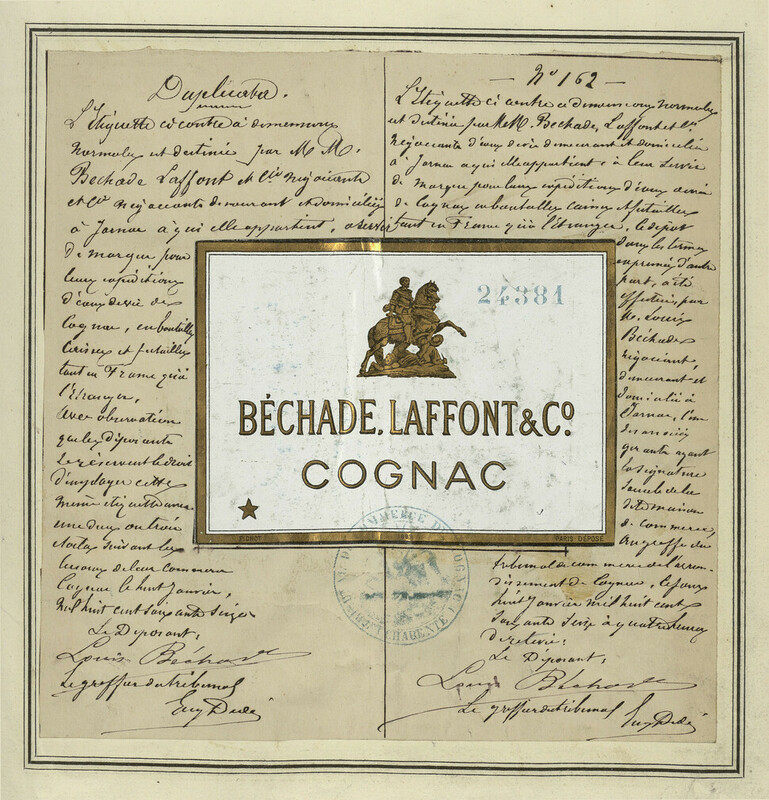 Duplicata.
L'étiquette ci contre à dimensions
normales est destinée par MM.
Béchade Laffont et Cie négociants
et Cie négociants demeurant et domiciliés
à Jarnac à qui elle appartient, à servir
de marque pour
leurs expéditions
d'eaux de vie de
Cognac, en bouteilles
caisses et futailles
tant en France qu'à
l'étranger,
Avec observation
que les déposants
se réservent le droit
d'employer cette
même étiquette avec
une deux ou trois
étoiles suivant les
besoins de leur commerce
Cognac le huit Janvier,
mil huit cent soixante seize
Le Déposant,
Louis Béchade
Le greffier du tribunal
Eug Dédé
— No 162 —
L'étiquette ci contre à dimensions normales
est destinée par MM. Béchade, Laffont et Cie
négociants d'eaux de vie demeurant et domiciliés
à Jarnac à qui elle appartient, à leur servir
de marque pour leurs expéditions d'eaux de vie
de Cognac en bouteilles caisses et futailles
tant en France qu'à l'étranger, le dépôt
dans les termes
exprimés d'autre
part, a été
effectué, par
M. Louis
Béchade
négociant,
demeurant et
domicilié à
Jarnac, l'un
des associés
gérants ayant
la signature
sociale de la
dite maison
de commerce,
au greffe du
tribunal de commerce de l'arron-
dissement de Cognac, le jour
huit Janvier mil huit cent
soixante seize à quatre heures
de relevée:
Le Déposant,
Louis Béchade
Le greffier du tribunal
Eug Dédé
24381
BÉCHADE, LAFFONT & Co.
COGNAC
PARIS DÉPOSÉ
COMMERCE DE COGNAC
CHARENTE